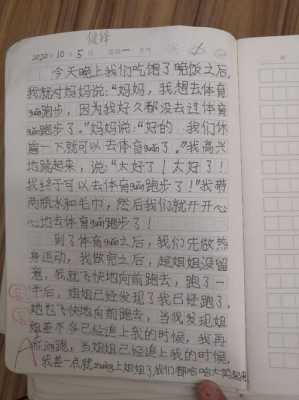 2020.10.5
今天晚上我们吃饱了晚饭之后,
我就对妈妈说:“妈妈,我想去体育
guǎn跑步,因为我好久都没去过体育
guǎn跑步了。”妈妈说:“好的,我们休
息一下就可以去体育guǎn了。”我高兴
地跳起来,说:“太好了!太好了!
我终于可以去体育guǎn跑步了!”我带
两瓶水和毛巾,然后我们就开开心
心地去体育guǎn跑步了!
到了体育guǎn之后,我们先做热
身运动,我做完之后,趁姐姐没留
意,我就飞快地向前跑去,跑了一
半后,姐姐已经发现了我已经跑了,
她也飞快地向前跑去,当我发现姐
姐差不多已经追上我的时候,我再
跑,当姐姐已经追上我的时候,
我差一点就zhuàng上姐姐了,我们都哈哈大笑起来